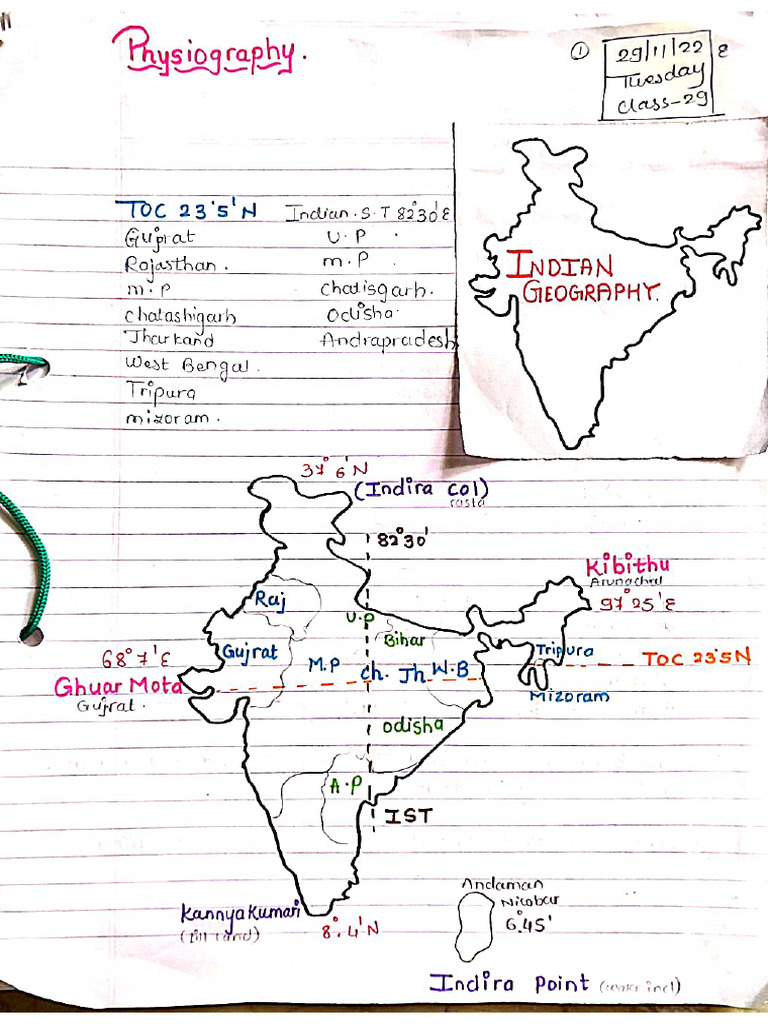 Physiography.
① 29/11/22
Tuesday
Class-29
INDIAN
GEOGRAPHY.
TOC 23°5'N Indian.S.T 82°30'E
Gujrat U.P
Rajasthan. M.P
M.P Chatisgarh.
Chatashigarh Odisha.
Jharkand Andrapradesh
West Bengal.
Tripura
Mizoram.
37°6'N
(Indira Col)
rasta
82°30'
Kibithu
Arunachal
97°25'E
Raj
U.P
Bihar
68°7'E
Gujrat
M.P Ch. Jh W.B
Tripura
TOC 23°5N
Ghuar Mota
Gujrat.
Mizoram
Odisha
A.P
IST
Andaman
Nicobar
6°.45'
Kannyakumari
(till land)
8°.4'N
Indira Point (water incl)